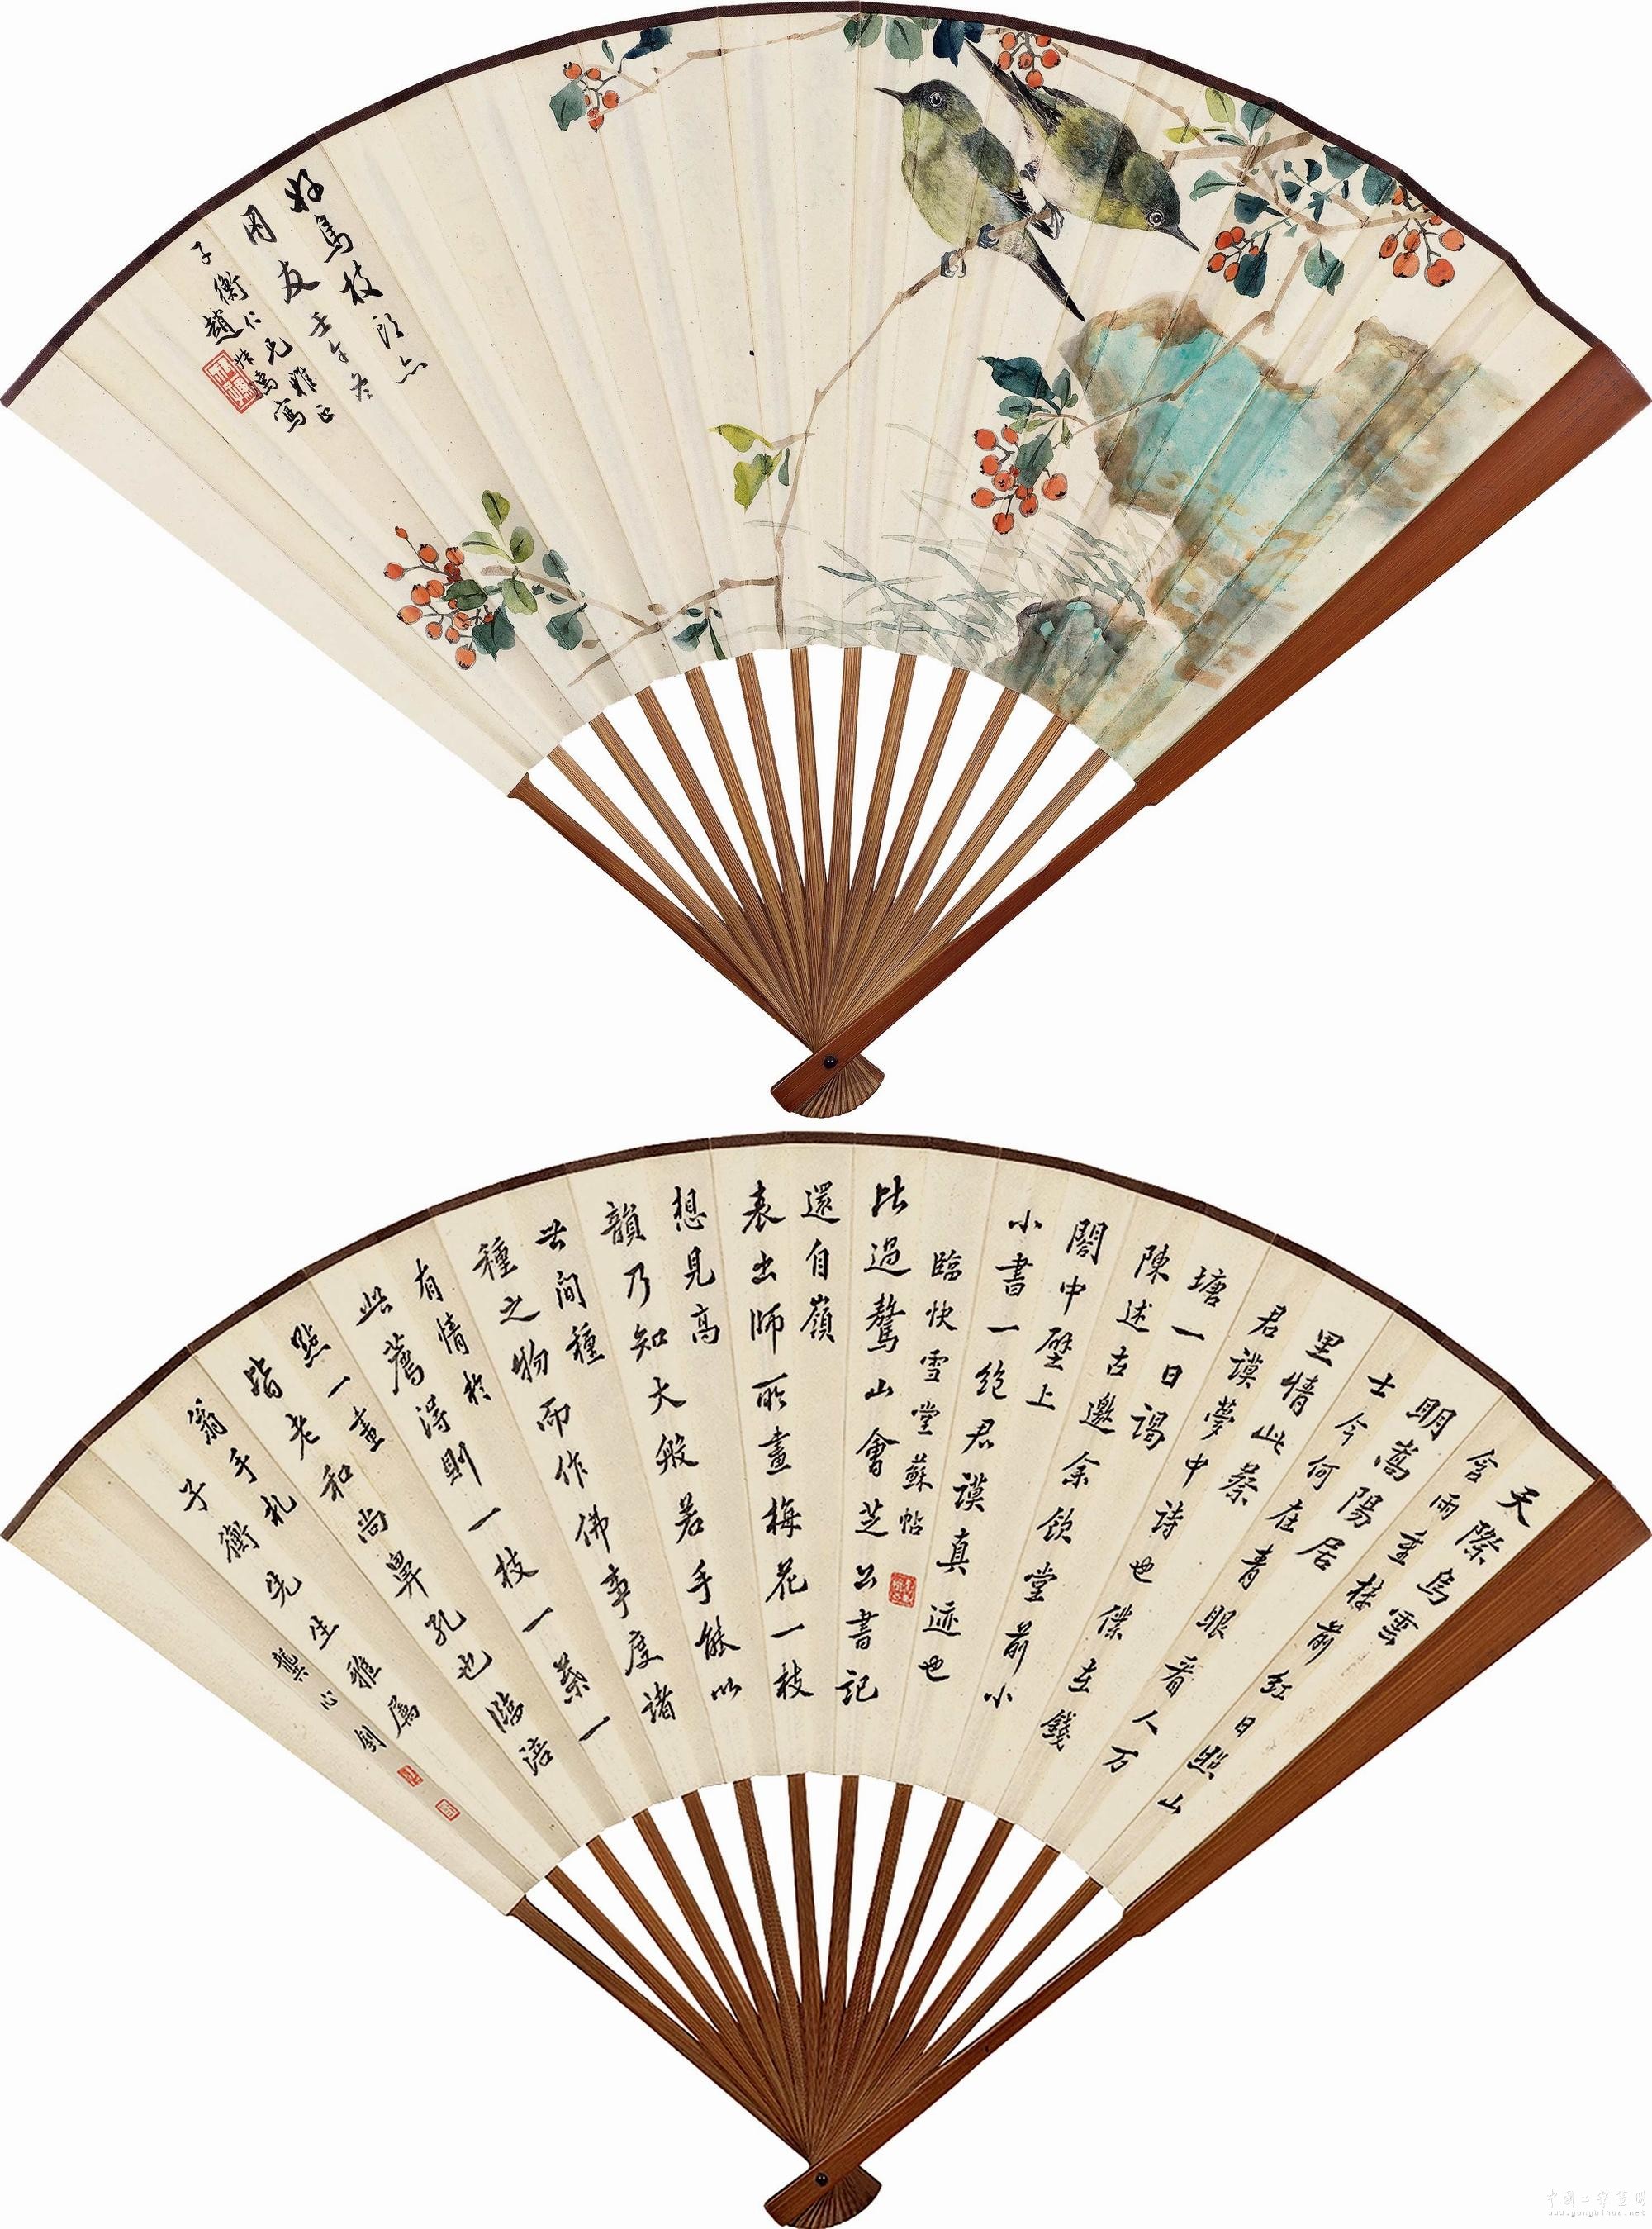 好鳥枝頭亦
朋友壬午冬
子衡仁兄雅正
趙
寫
天際烏雲
含雨重樓前紅日照山
明嵩陽居
士今何在青眼看人万
里情此蔡
君謨夢中詩也僕在錢
塘一日謁
陳述古邀余飲堂前小
閤中壁上
小書一絕君謨真迹也
臨快雪堂蘇帖
比過鷲山會芝公書記
還自嶺
表出師所畫梅花一枝
想見高
韻乃知大般若手能以
世間種
種之物而作佛事度諸
有情於
此薦得則一枝一蕊一
點一畫
皆老和尚鼻孔也臨涪
翁手札
子衡先生雅屬
龔心釗
中國工筆畫網
www.gongbihua.net